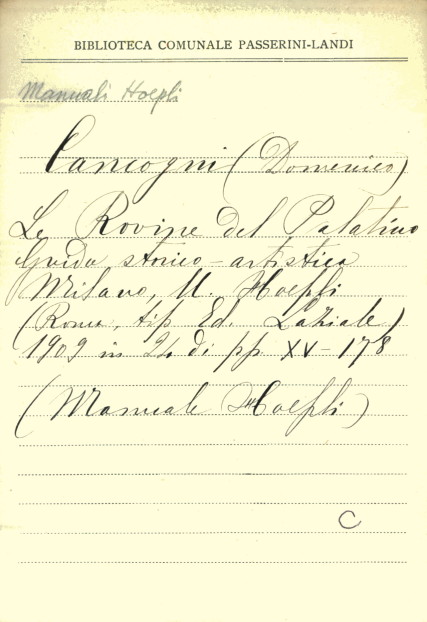 BIBLIOTECA COMUNALE PASSERINI-LANDI
Manuali Hoepli
Cancogni (Domenico)
Le Rovine del Palatino
Guida storico-artistica
Milano, U. Hoepli
(Roma, tip. Ed. Laziale)
1909 in 24. di pp. XV-178
(Manuale Hoepli)
C